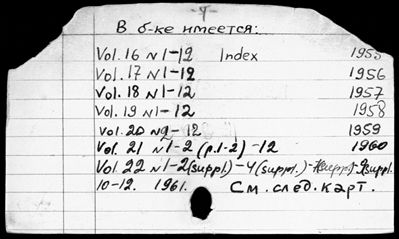 -9-
В б-ке имеется:
Vol. 16 N 1-12 Index 1955
Vol. 17 N 1-12 1956
Vol. 18 N 1-12 1957
Vol. 19 N 1-12 1958
Vol. 20 N 2-12 1959
Vol. 21 N 1-2 (p.1-2) -12 1960
Vol. 22 N 1-2 (suppl.) - 4 (suppl.) - 9 (suppl.)
10-12. 1961. См. след. карт.